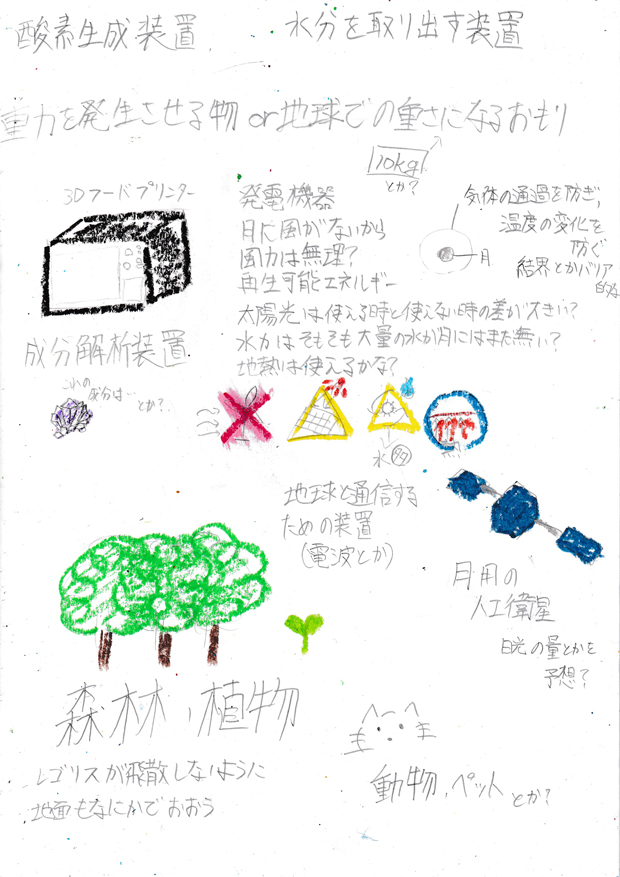 酸素生成装置
水分を取り出す装置
重力を発生させる物or地球での重さになるおもり
10kg
とか?
3Dフードプリンター
発電機器
月に風がないから
風力は無理?
再生可能エネルギー
太陽光は使える時と使えない時の差が大きい?
水力はそもそも大量の水が月にはまだ無い?
地熱は使えるかな?
気体の通過を防ぎ、
温度の変化を
防ぐ
結界とかバリア
的な
月
成分解析装置
これの
成分は…
とか?
???
水
地球と通信する
ための装置
(電波とか)
月用の
人工衛星
日光の量とかを
予想?
森林、植物
レゴリスが飛散しないように
地面もなにかでおおう
動物、ペットとか?